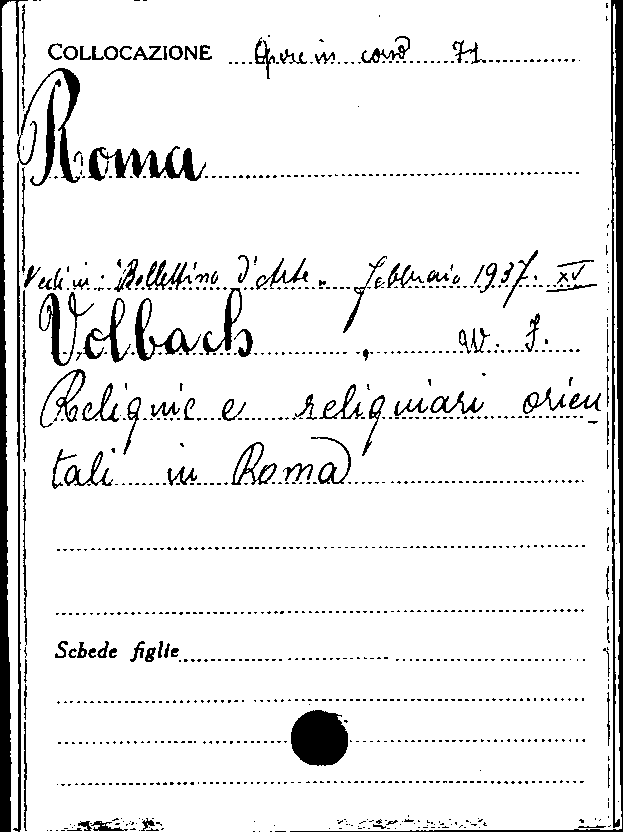 COLLOCAZIONE Opere in corso 71
Roma
Vedi in: "Bollettino d'Arte" febbraio 1937. XV
Volbach, W. F.
Reliquie e reliquiari orien
tali in Roma
Schede figlie